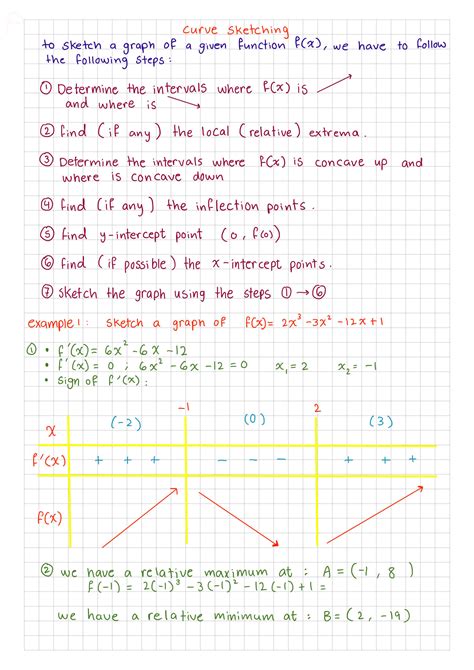 curve sketching
to sketch a graph of a given function f(x), we have to follow
the following steps:
① Determine the intervals where f(x) is
and where is
② find (if any) the local (relative) extrema.
③ Determine the intervals where f(x) is concave up and
where is concave down
④ find (if any) the inflection points.
⑤ find y-intercept point (0, f(0))
⑥ find (if possible) the x-intercept points.
⑦ Sketch the graph using the steps ① → ⑥
example 1: sketch a graph of f(x) = 2x³ -3x² -12x +1
① • f'(x) = 6x² -6x -12
• f'(x) = 0 ; 6x² -6x -12 = 0 x₁ = 2 x₂ = -1
• sign of f'(x):
-1 2
x (-2) (0) (3)
f'(x) + + + - - - + + +
f(x)
② we have a relative maximum at : A = (-1, 8)
f(-1) = 2(-1)³ -3(-1)² -12(-1) +1 =
we have a relative minimum at : B = (2, -19)